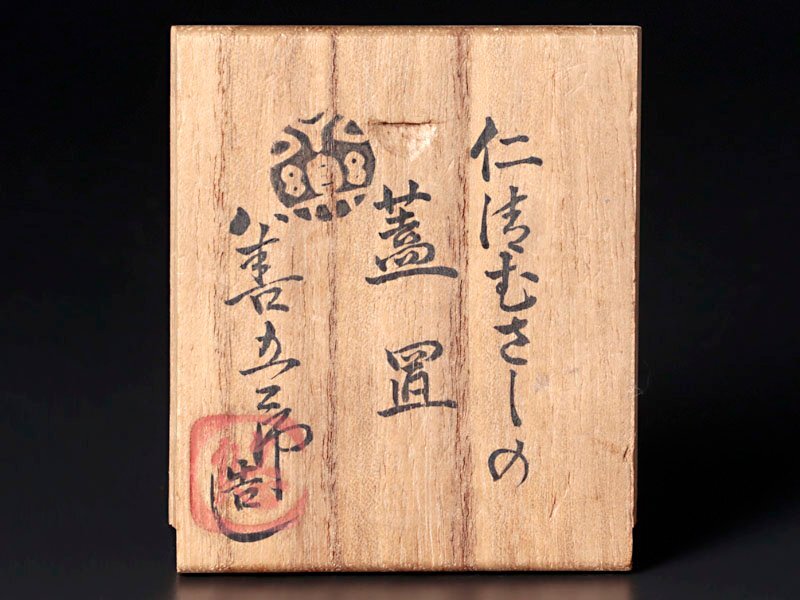 仁清むさしの
蓋置
善五郎
造